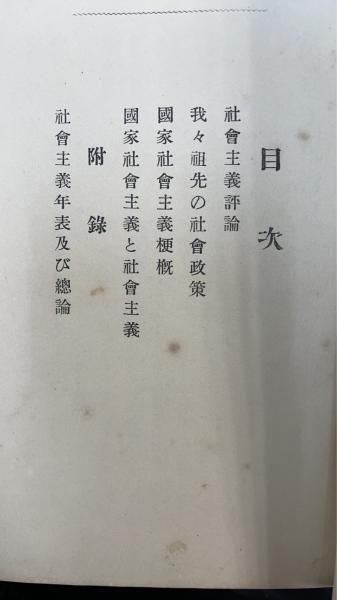 目次
社會主義評論
我々祖先の社會政策
國家社會主義梗槪
國家社會主義と社會主義
附錄
社會主義年表及び總論